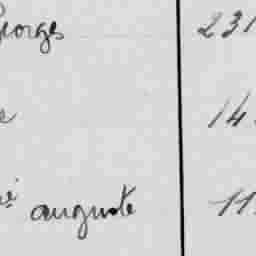 Georges 231
e 14
né auguste 11